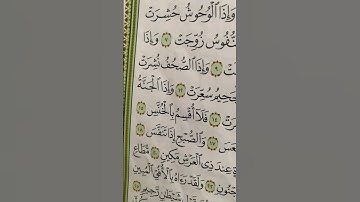 وَإِذَا ٱلْوُحُوشُ حُشِرَتْ
نُّفُوسُ زُوِّجَتْ ٧ وَإِذَا
تْ ٩ وَإِذَا ٱلصُّحُفُ نُشِرَتْ
جَحِيمُ سُعِّرَتْ ١٢ وَإِذَا ٱلْجَنَّةُ
رَتْ ١٤ فَلَآ أُقْسِمُ بِٱلْخُنَّسِ ١٥
عَسَ ١٧ وَٱلصُّبْحِ إِذَا تَنَفَّسَ ١٨
ةٍ عِندَ ذِى ٱلْعَرْشِ مَكِينٍ ٢٠ مُّطَاعٍ
جْنُونٍ ٢٢ وَلَقَدْ رَءَاهُ بِٱلْأُفُقِ ٱلْمُبِينِ
شَيْطَٰنٍ رَّجِيمٍ